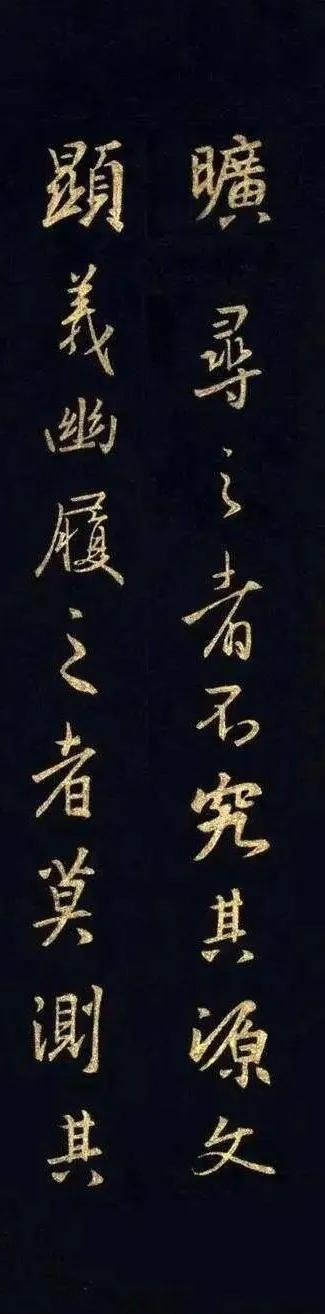 曠尋之者不究其源文
顯義幽履之者莫測其